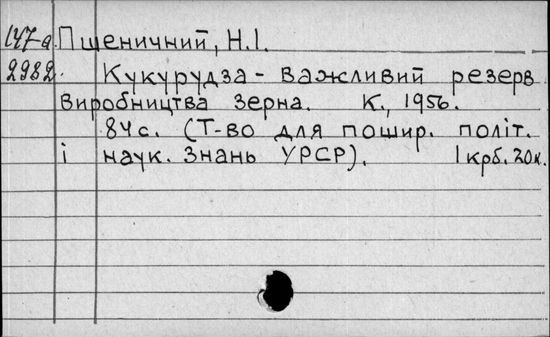 147-а. Пшеничний, Н.І.
2982. Кукурудза - важливий резерв
виробництва зерна. К., 1956.
84с. (Т-во для пошир. політ.
і наук. знань УРСР). 1крб. 20к.